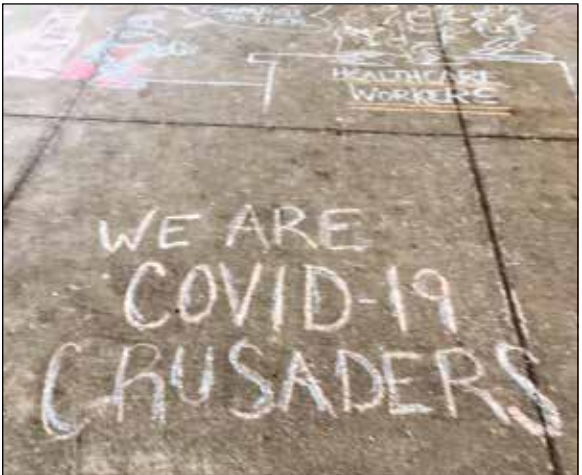 HEALTHCARE
WORKERS
WE ARE
COVID-19
CRUSADERS